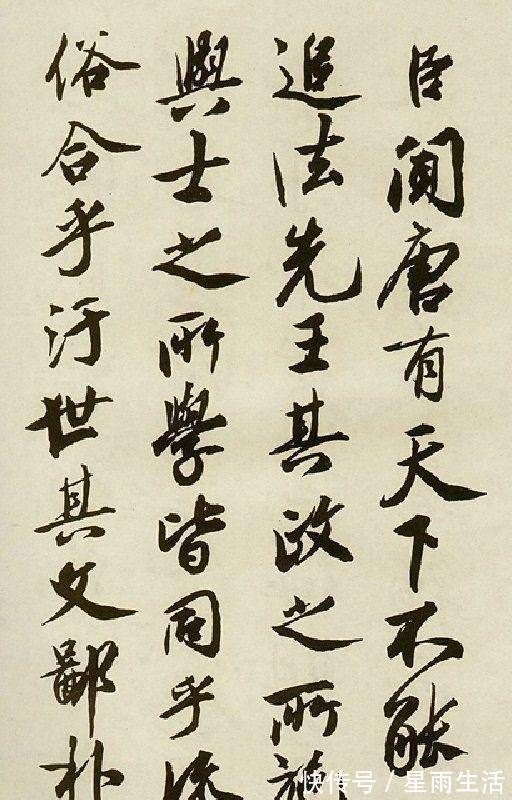 臣聞唐有天下不能
追法先王其政之所施
與士之所學皆同乎流
俗合乎污世其文鄙朴
快传号/星雨生活